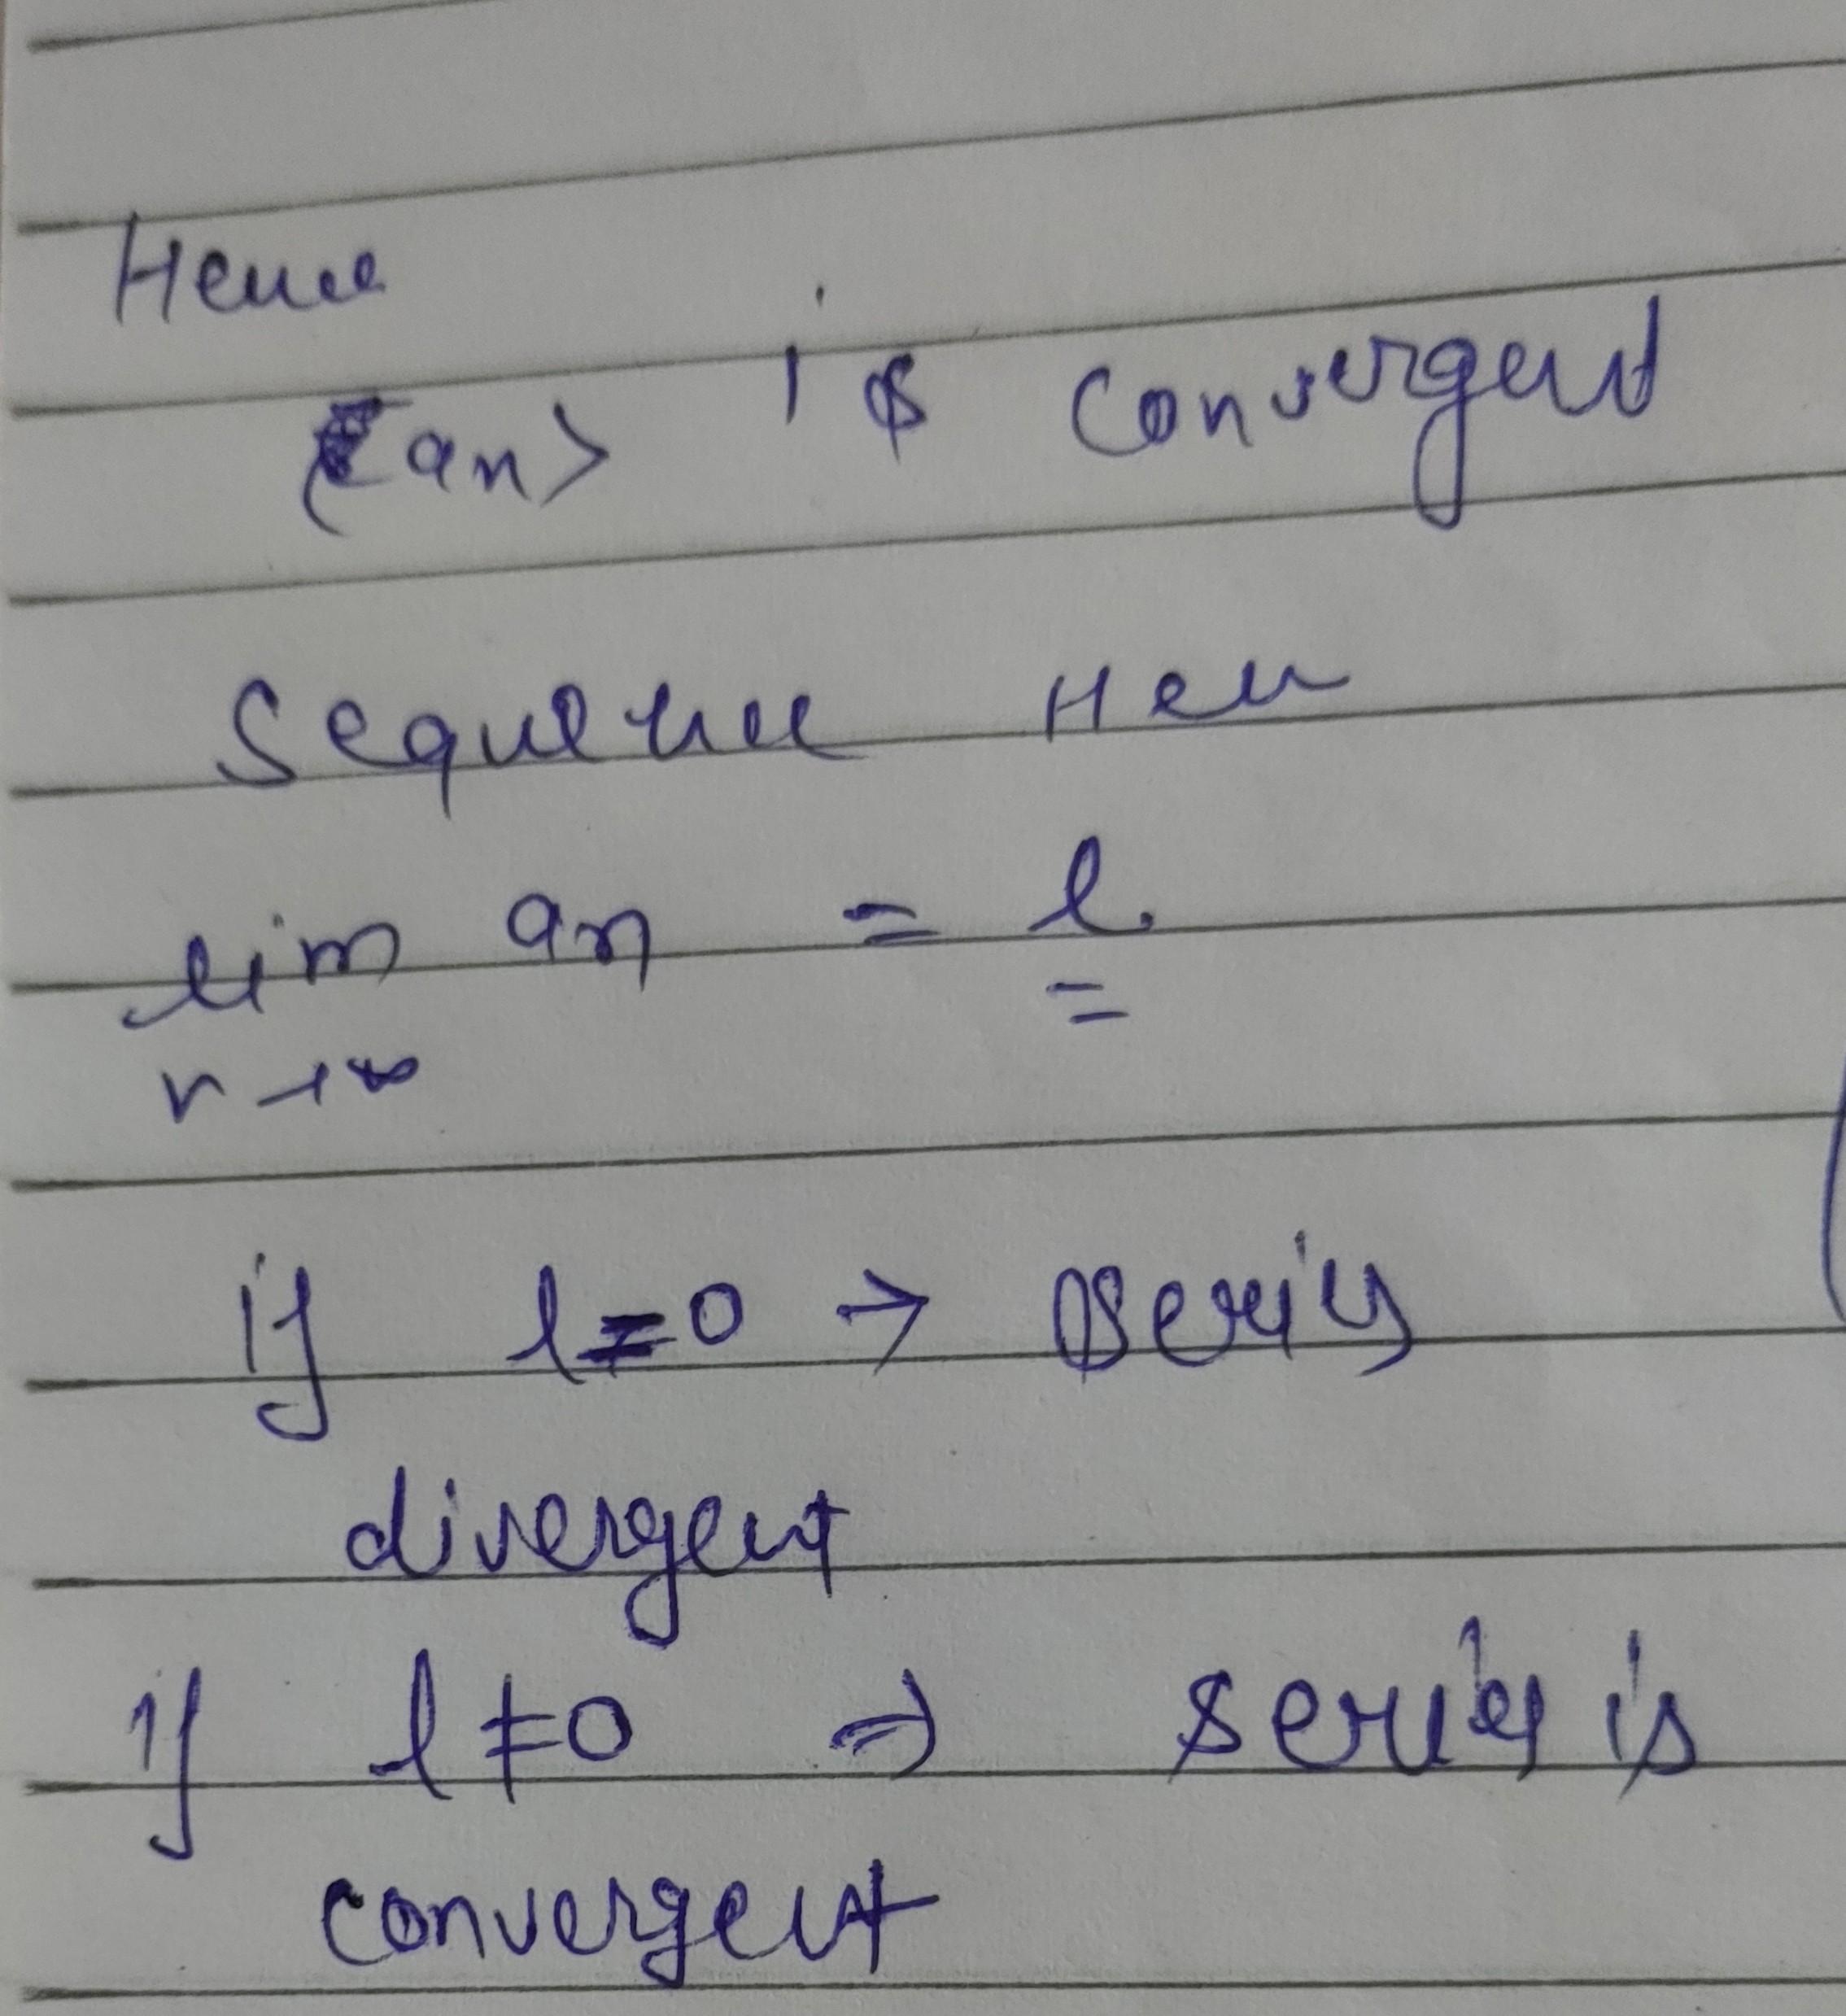 Hence
<an> is convergent
Sequence Hen
lim an = l.
n→∞
if l=0 → series
divergent
if l≠0 ⇒ series is
convergent